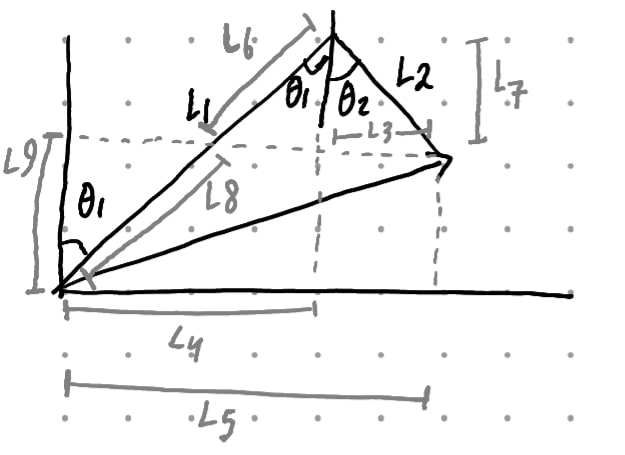 L6
L1
θ1
θ2
L2
L7
L3
L9
θ1
L8
L4
L5